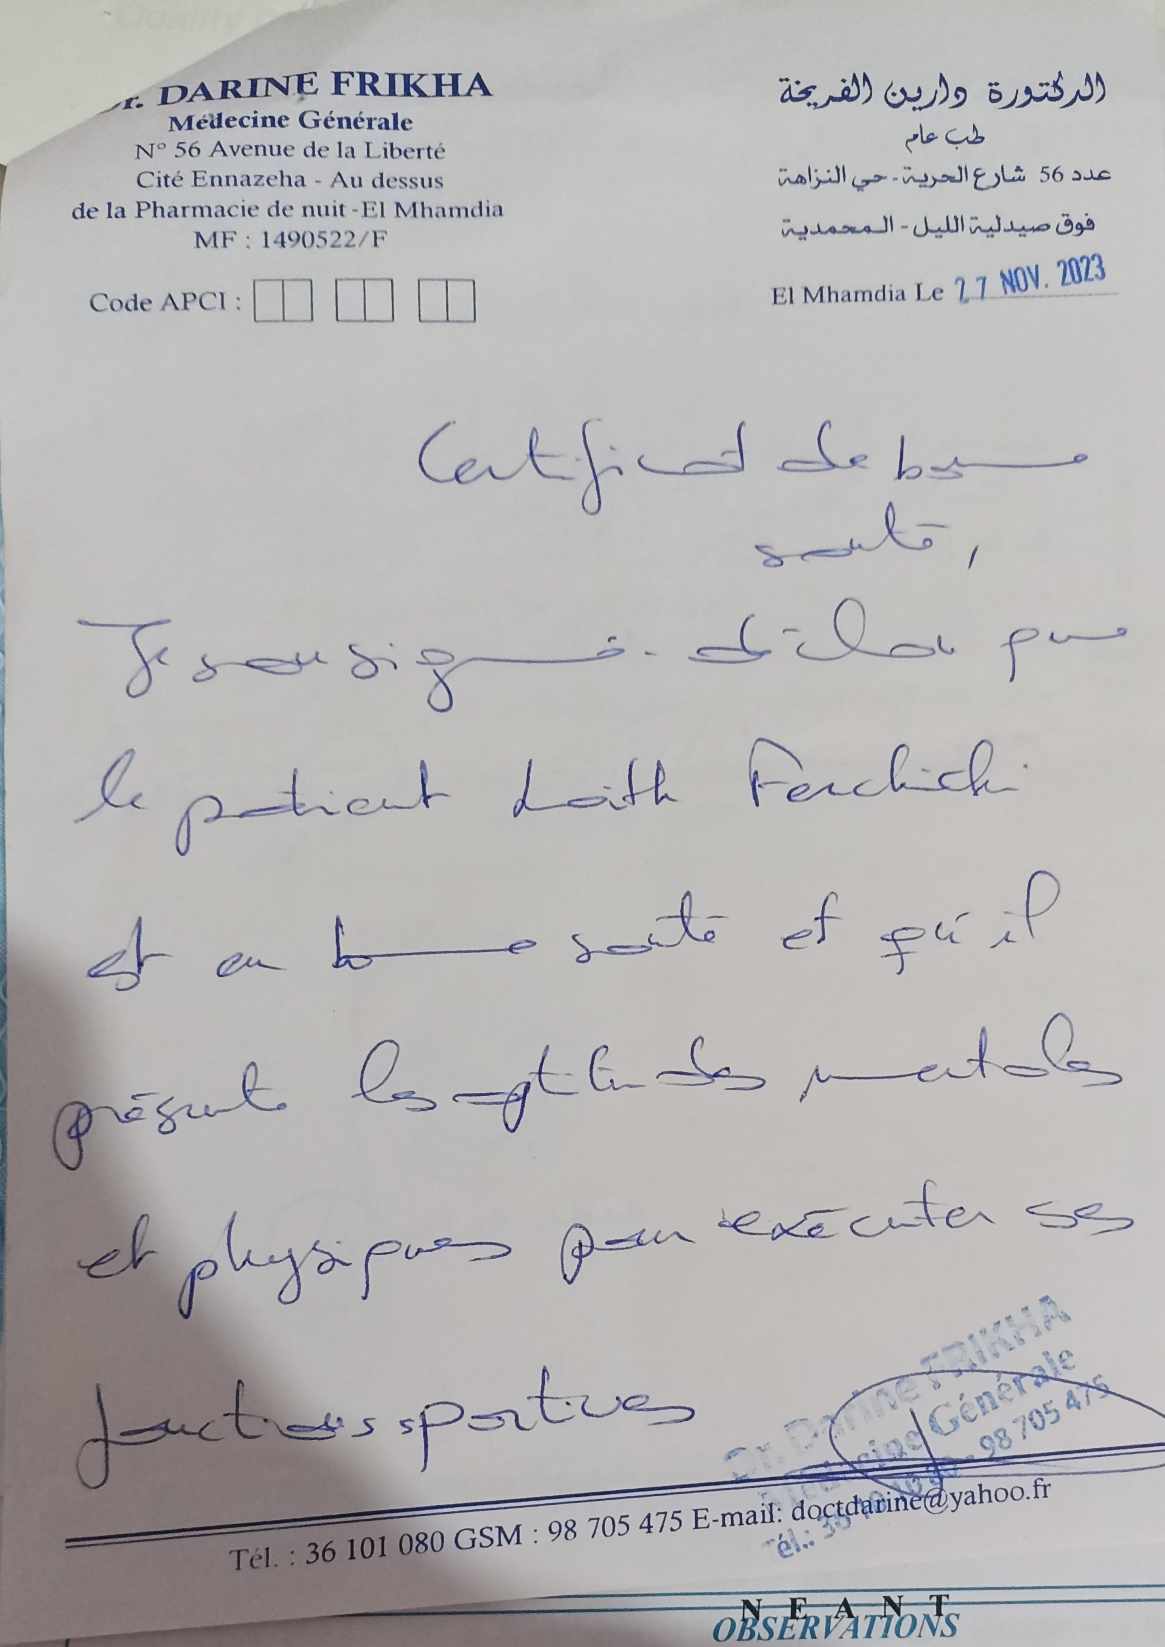 Dr. DARINE FRIKHA
Médecine Générale
N° 56 Avenue de la Liberté
Cité Ennazeha - Au dessus
de la Pharmacie de nuit - El Mhamdia
MF : 1490522/F
Code APCI :
الدكتورة دارين الفريخة
طب عام
عدد 56 شارع الحرية - حي النزاهة
فوق صيدلية الليل - المحمدية
El Mhamdia Le 27 NOV. 2023
Certificat de bonne
santé,
Je soussigné déclare que
le patient Laith Ferchichi
est en bonne santé et qu'il
présente les aptitudes mentales
et physiques pour exécuter ses
fonctions sportives
Dr. Darine FRIKHA
Médecine Générale
Tél.: 36 101 080 - 98 705 475
Tél. : 36 101 080 GSM : 98 705 475 E-mail: doctdarine@yahoo.fr
NEANT
OBSERVATIONS